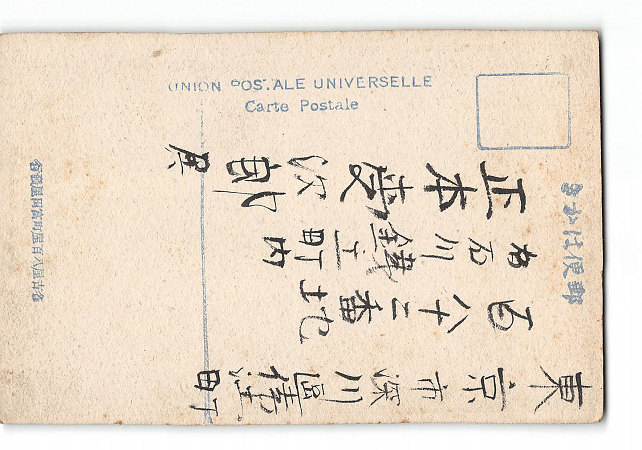 UNION POSTALE UNIVERSELLE
Carte Postale
きかは便郵
東京市深川區町
百八十二番地
石川鑄工町内
正本愛次郎